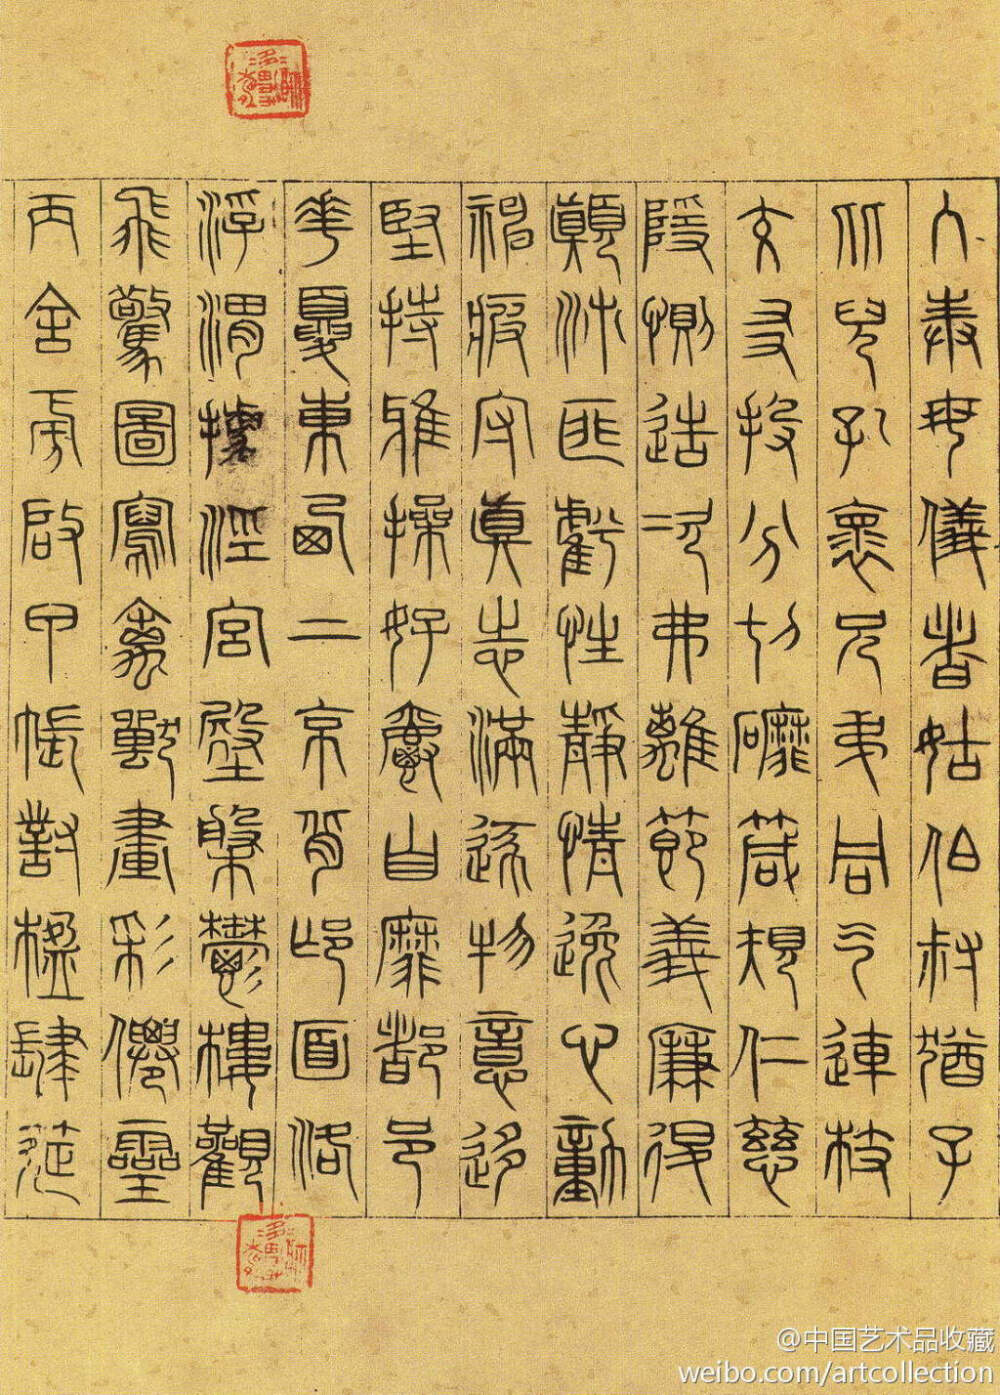 入奉母儀者姑伯叔猶子
比兒孔褱兄弟同气連枝
交友投分切磨箴規仁慈
隱惻造次弗離節義廉退
顛沛匪虧性靜情逸心動
神疲守真志滿逐物意移
堅持雅操好爵自縻都邑
華夏東西二京背邙面洛
浮渭據涇宮殿盤鬱樓觀
飛驚圖寫禽獸畫彩僊靈
丙舍旁啟甲帳對楹肆筵
@中国艺术品收藏
weibo.com/artcollection